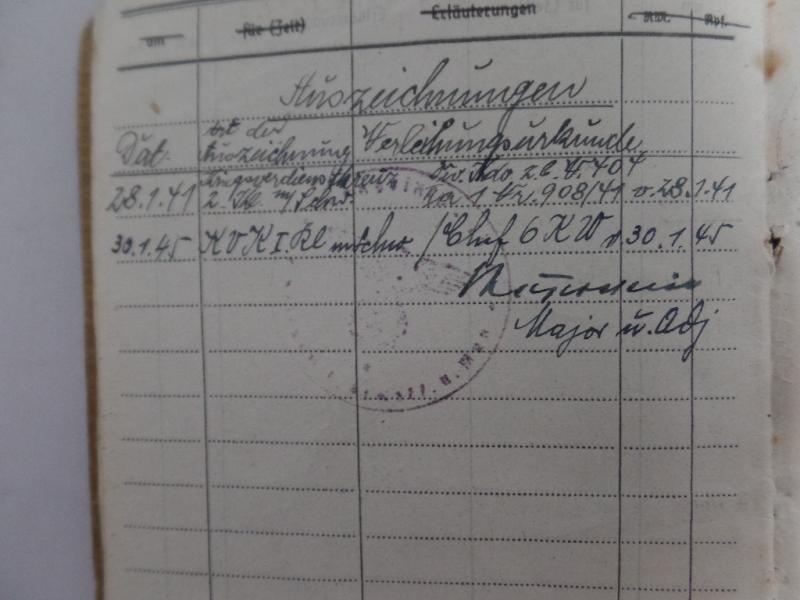 am für (Zeit) Erläuterungen RM. Rpf.
Auszeichnungen
Dat. Art der Auszeichnung Verleihungsurkunde
28.1.41 Kriegsverdienstkreuz 2. Kl m/Schw. Div. Kdo z.b.V. 404
Nr. 908/41 v. 28.1.41
30.1.45 KVK I. Kl m Schw / Chef 6 KW v. 30.1.45
Major u. Adj